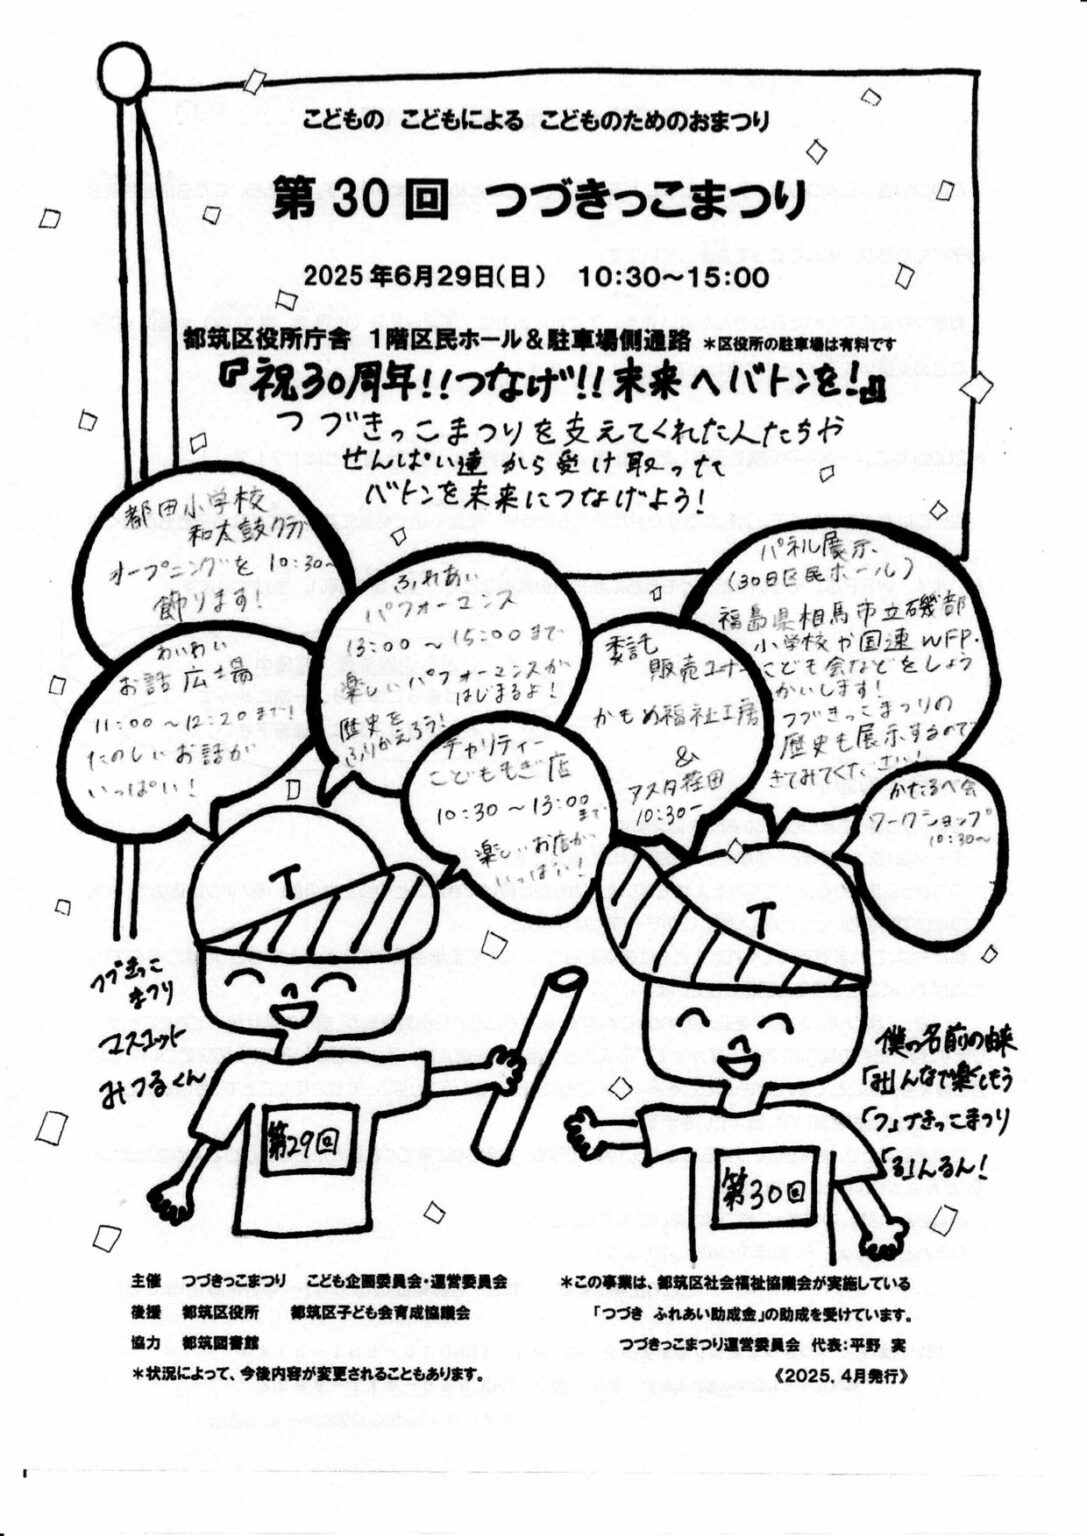 こどもの こどもによる こどものためのおまつり
第30回 つづきっこまつり
2025年6月29日(日) 10:30～15:00
都筑区役所庁舎 1階区民ホール&駐車場側通路 *区役所の駐車場は有料です
『祝30周年!!つなげ!!未来へバトンを!』
つづきっこまつりを支えてくれた人たちや
せんぱい達から受け取った
バトンを未来につなげよう!
都田小学校
和太鼓クラブ
オープニングを10:30～
飾ります!
わいわい
お話広場
11:00～12:20まで!
たのしいお話が
いっぱい!
ふれあい
パフォーマンス
13:00～15:00まで
楽しいパフォーマンスが
はじまるよ!
歴史を
ふりかえろう!
チャリティー
こどももぎ店
10:30～13:00
まで
楽しいお店が
いっぱい!
委託
販売コーナー
かもめ福祉工房
&
アスタ荏田
10:30～
パネル展示、
(30日区民ホール)
福島県相馬市立磯部
小学校や国連WFP.
こども会などをしょう
かいします!
つづきっこまつりの
歴史も展示するので
きてみてください!
かたるべ会
ワークショップ
10:30～
T
T
つづきっこ
まつり
マスコット
みつるくん
第29回
第30回
僕の名前の由来
「み」んなで楽しもう
「つ」づきっこまつり
「る」んるん!
主催 つづきっこまつり こども企画委員会・運営委員会
後援 都筑区役所 都筑区子ども会育成協議会
協力 都筑図書館
*状況によって、今後内容が変更されることもあります。
*この事業は、都筑区社会福祉協議会が実施している
「つづき ふれあい助成金」の助成を受けています。
つづきっこまつり運営委員会 代表:平野 実
《2025．4月発行》